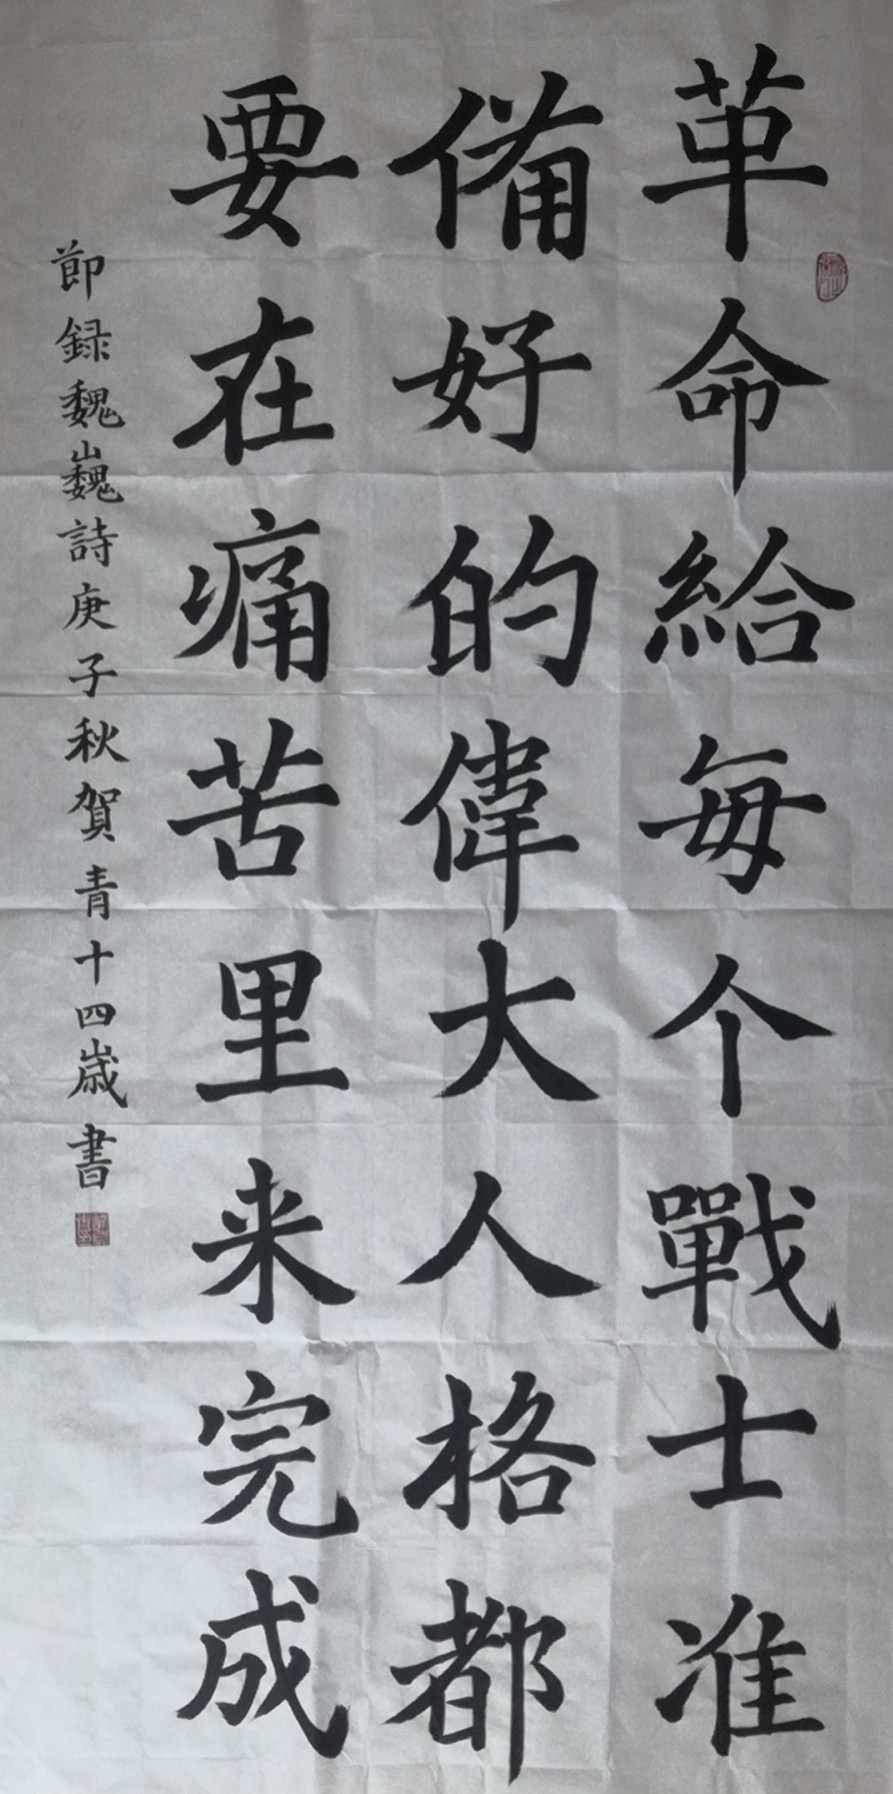 革命給每个戰士准
備好的偉大人格都
要在痛苦里来完成
節録魏巍詩庚子秋賀青十四歳書